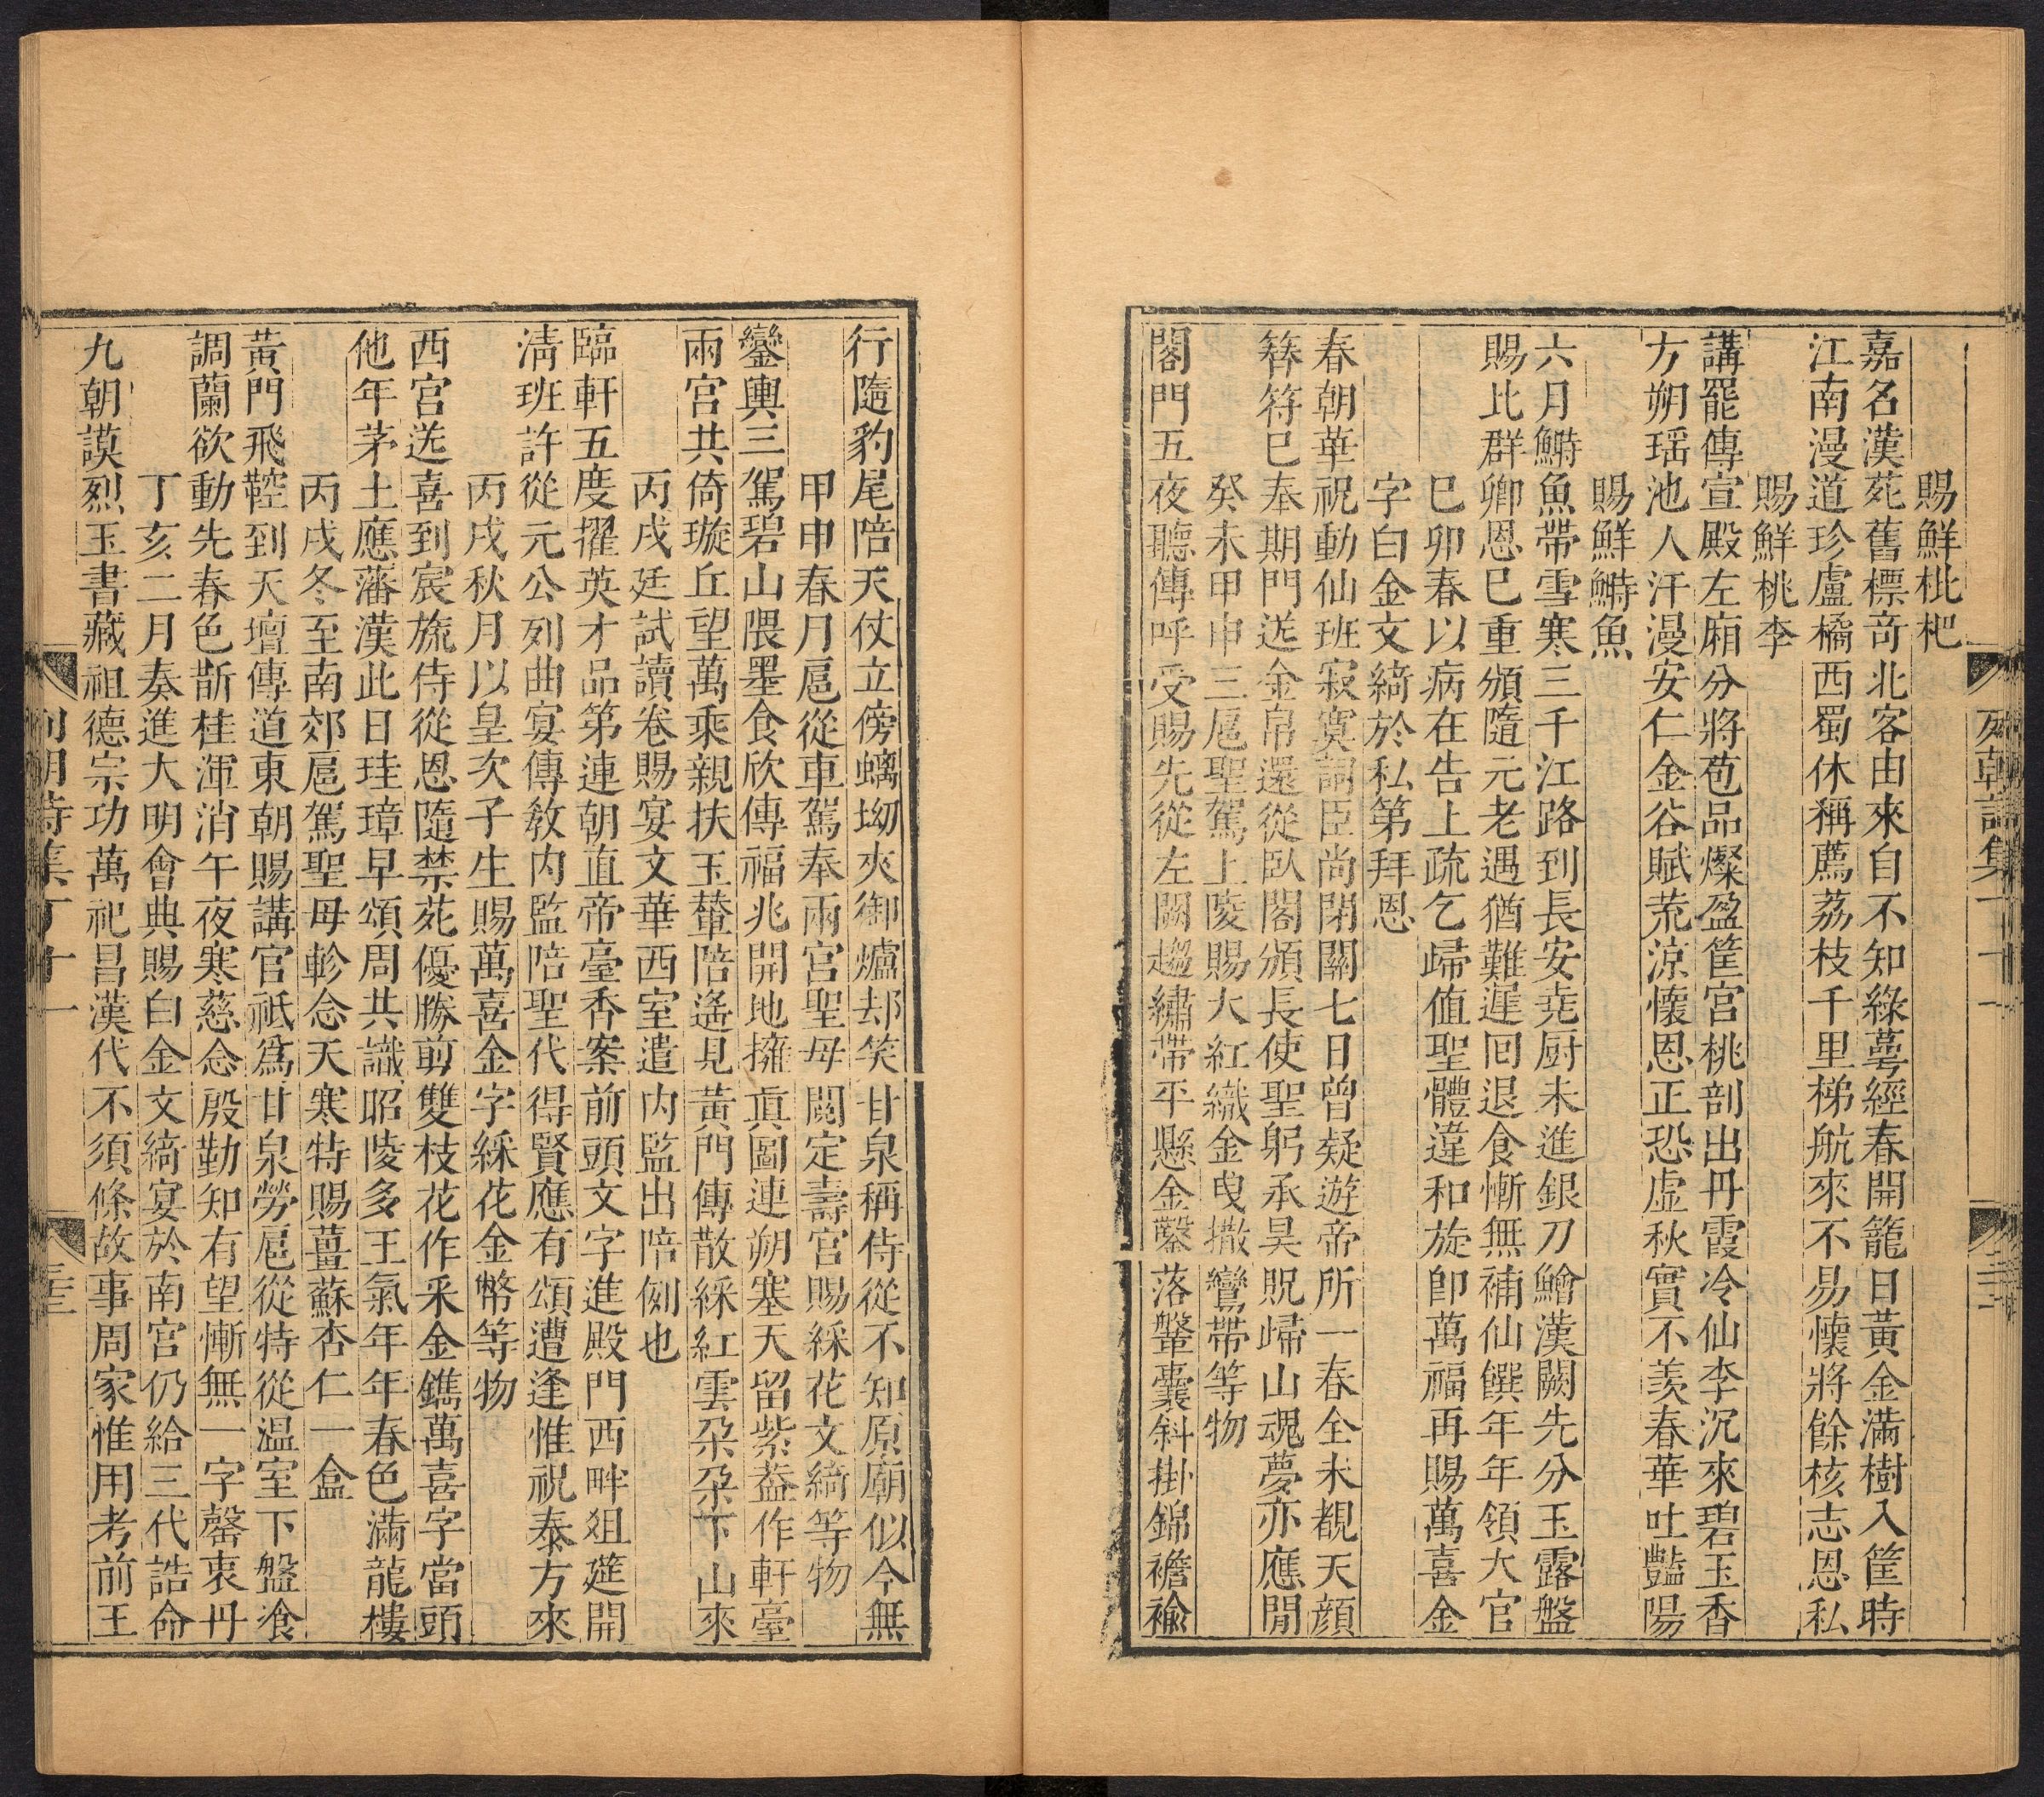 賜鮮枇杷
嘉名漢苑舊標奇北客由來自不知綠蕚經春開籠日黃金滿樹入筐時
江南漫道珍盧橘西蜀休稱薦荔枝千里梯航來不易懷將餘核志恩私
賜鮮桃李
講罷傳宣殿左廂分將苞品燦盈筐宮桃剖出丹霞冷仙李沉來碧玉香
方朔瑶池人汗漫安仁金谷賦荒涼懷恩正恐虛秋實不羨春華吐豔陽
賜鮮鰣魚
六月鰣魚帶雪寒三千江路到長安堯厨未進銀刀鱠漢闕先分玉露盤
賜比群卿恩已重頒隨元老遇猶難遲回退食慚無補仙饌年年領大官
己卯春以病在告上疏乞歸值聖體違和旋卽萬福再賜萬喜金
字白金文綺於私第拜恩
春朝華祝動仙班寂寞詞臣尚閉關七日曾疑遊帝所一春全未覩天顔
簪符已奉期門送金帛還從臥閣頒長使聖躬承昊貺歸山魂夢亦應閒
癸未甲申三扈聖駕上陵賜大紅織金曳撒鸞帶等物
閣門五夜聽傳呼受賜先從左闕趨繡帶平懸金鑿落鞶囊斜掛錦襜褕
行隨豹尾陪天仗立傍螭坳夾御爐却笑甘泉稱侍從不知原廟似今無
甲申春月扈從車駕奉兩宮聖母閱定壽宮賜綵花文綺等物
鑾輿三駕碧山隈墨食欣傳福兆開地擁眞圖連朔塞天留紫葢作軒臺
兩宮共倚璇丘望萬乘親扶玉輦陪遙見黃門傳散綵紅雲朶朶下山來
丙戌廷試讀卷賜宴文華西室遣內監出陪例也
臨軒五度擢英才品第連朝直帝臺香案前頭文字進殿門西畔俎筵開
淸班許從元公列曲宴傳教內監陪聖代得賢應有頌遭逢惟祝泰方來
丙戌秋月以皇次子生賜萬喜金字綵花金幣等物
西宮送喜到宸旒侍從恩隨禁苑優勝剪雙枝花作釆金鐫萬喜字當頭
他年茅土應藩漢此日珪璋早頌周共識昭陵多王氣年年春色滿龍樓
丙戌冬至南郊扈駕聖母軫念天寒特賜薑蘇杏仁一盒
黃門飛鞚到天壇傳道東朝賜講官祇爲甘泉勞扈從特從溫室下盤飡
調蘭欲動先春色斮桂渾消午夜寒慈念殷勤知有望慚無一字罄衷丹
丁亥二月奏進大明會典賜白金文綺宴於南宮仍給三代誥命
九朝謨烈玉書藏祖德宗功萬祀昌漢代不須條故事周家惟用考前王
列朝詩集丁十一
三